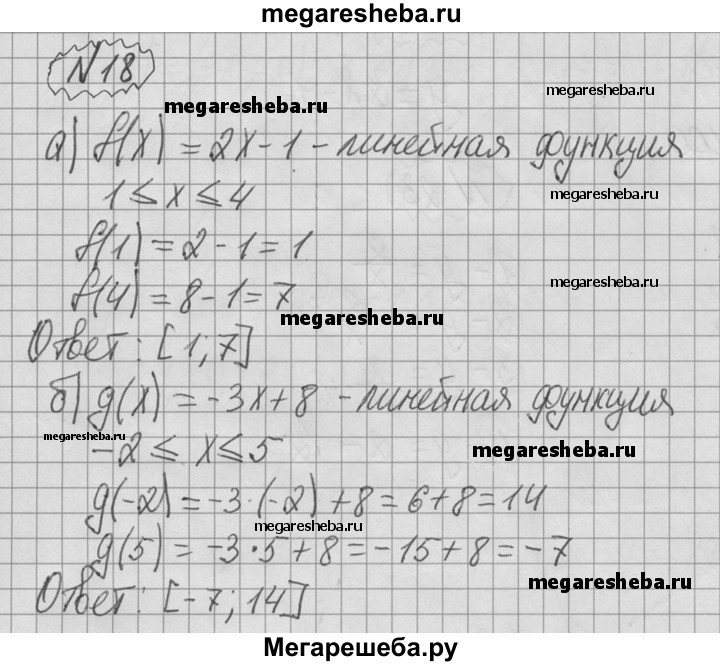 megaresheba.ru
№18
megaresheba.ru
megaresheba.ru
а) f(x) = 2x - 1 - линейная функция
megaresheba.ru
1 ≤ x ≤ 4
f(1) = 2 - 1 = 1
megaresheba.ru
f(4) = 8 - 1 = 7
megaresheba.ru
Ответ: [1; 7]
б) g(x) = -3x + 8 - линейная функция
megaresheba.ru
megaresheba.ru
-2 ≤ x ≤ 5
g(-2) = -3·(-2) + 8 = 6 + 8 = 14
megaresheba.ru
g(5) = -3·5 + 8 = -15 + 8 = -7
megaresheba.ru
Ответ: [-7; 14]
Мегарешеба.ру